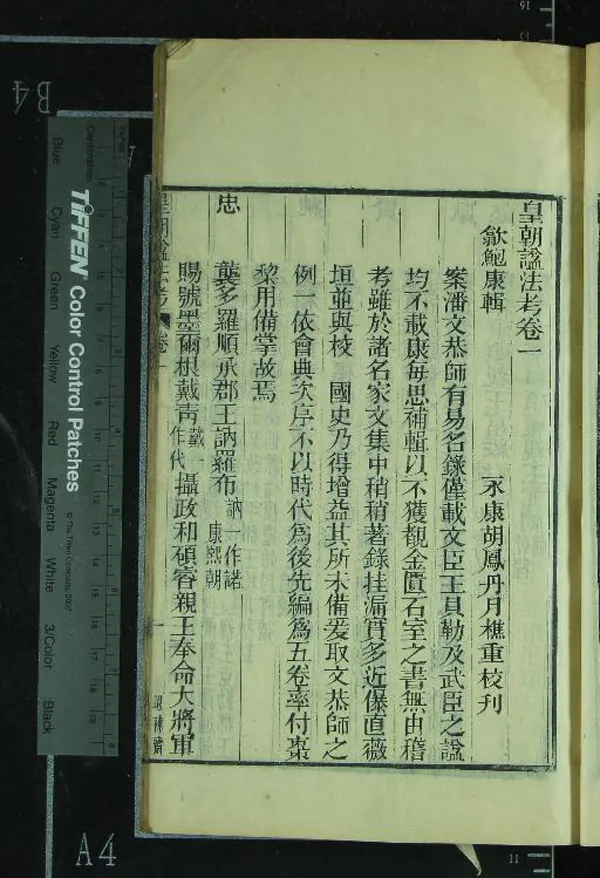 皇朝諡法考卷一
歙鮑康輯
永康胡鳳丹月樵重校刊
案潘文恭師有易名錄僅載文臣王貝勒及武臣之諡
均不載康每思補輯以不獲觀金匱石室之書無由稽
考雖於諸名家文集中稍稍著錄挂漏實多近儤直薇
垣並與校 國史乃得增益其所未備爰取文恭師之
例一依會典次序不以時代為後先編為五卷率付棗
棃用備掌故焉
忠
襲多羅順承郡王訥羅布訥一作諾康熙朝
賜號墨爾根戴青戴一作代攝政和碩睿親王奉命大將軍
皇朝諡法考 卷一
一
退補齋
B4
A4
inches
Centimetres
TIFFEN Color Control Patches
© The Tiffen Company, 2007
Blue
Cyan
Green
Yellow
Red
Magenta
White
3/Color
Black
16
11